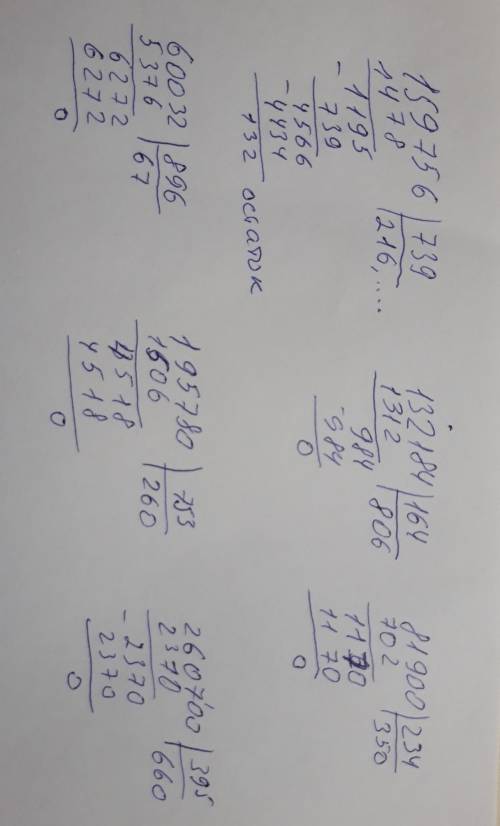 159756 | 739
1478 | 216,....
- 1195
739
- 4566
4434
132 остаток
132184 | 164
1312 | 806
- 984
984
0
81900 | 234
702 | 350
1170
1170
0
60032 | 896
5376 | 67
6272
6272
0
195780 | 753
1506 | 260
4518
4518
0
260700 | 395
2370 | 660
- 2370
2370
0